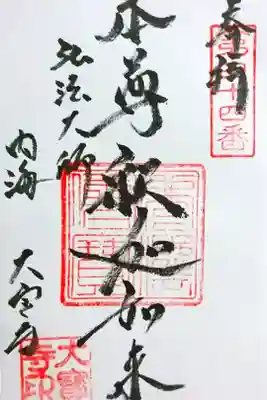 奉拝
第四十四番
本尊釈迦如来
弘法大師
内海
大宝寺
大寶寺印